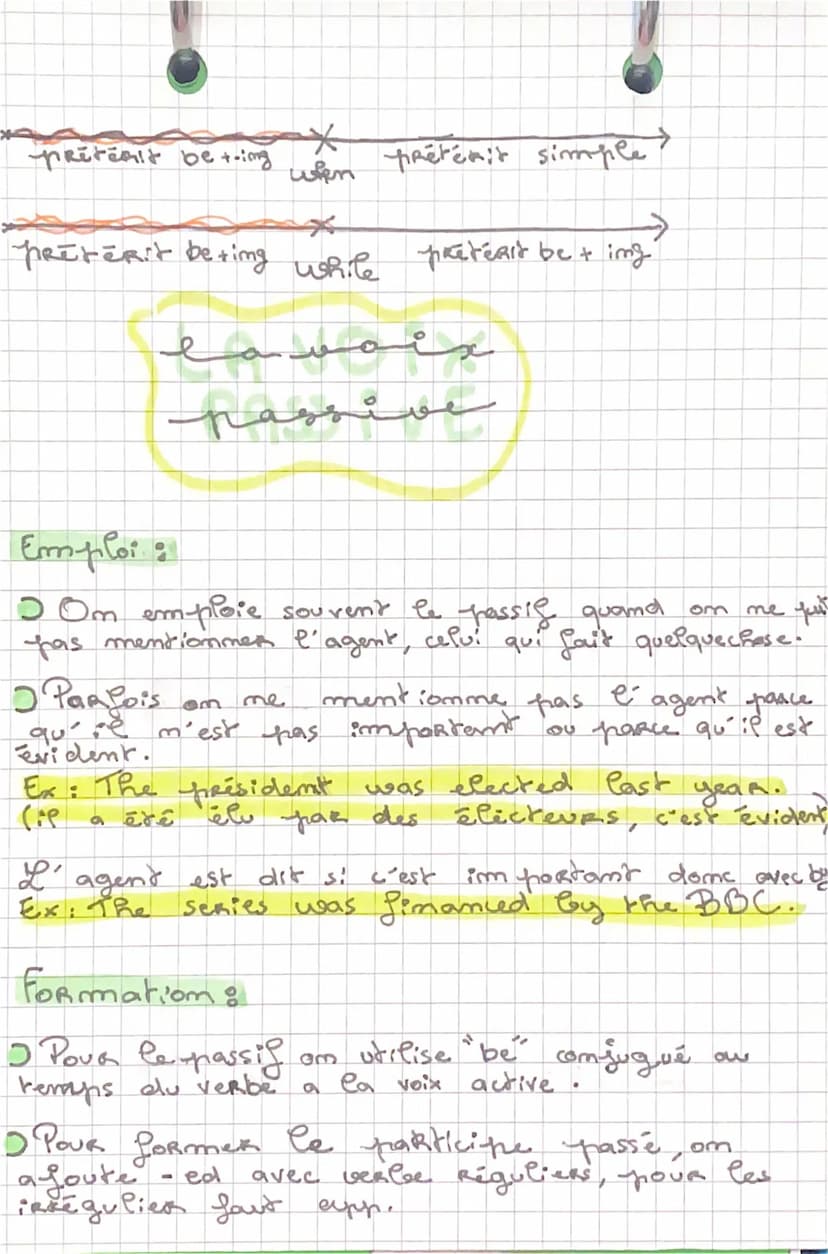 prétérit be+-ing when prétérit simple
prétérit be+ing while prétérit be + ing
La voix
passive
Emploi :
On emploie souvent le passif quand on ne
pas mentionner l'agent, celui qui fait quelquechose.
Parfois on ne mentionne pas l'agent parce
qu'il n'est pas important ou parce qu'il est
évident.
Ex : The président was elected last year.
(il a été élu par des électeurs, c'est évident)
L'agent est dit si c'est important donc avec by
Ex : The series was financed by the BBC.
Formation :
Pour le passif on utilise "be" conjugué au
temps du verbe a la voix active.
Pour former le participe passé, on
ajoute -ed avec verbe réguliers, pour les
irrégulier faut app.